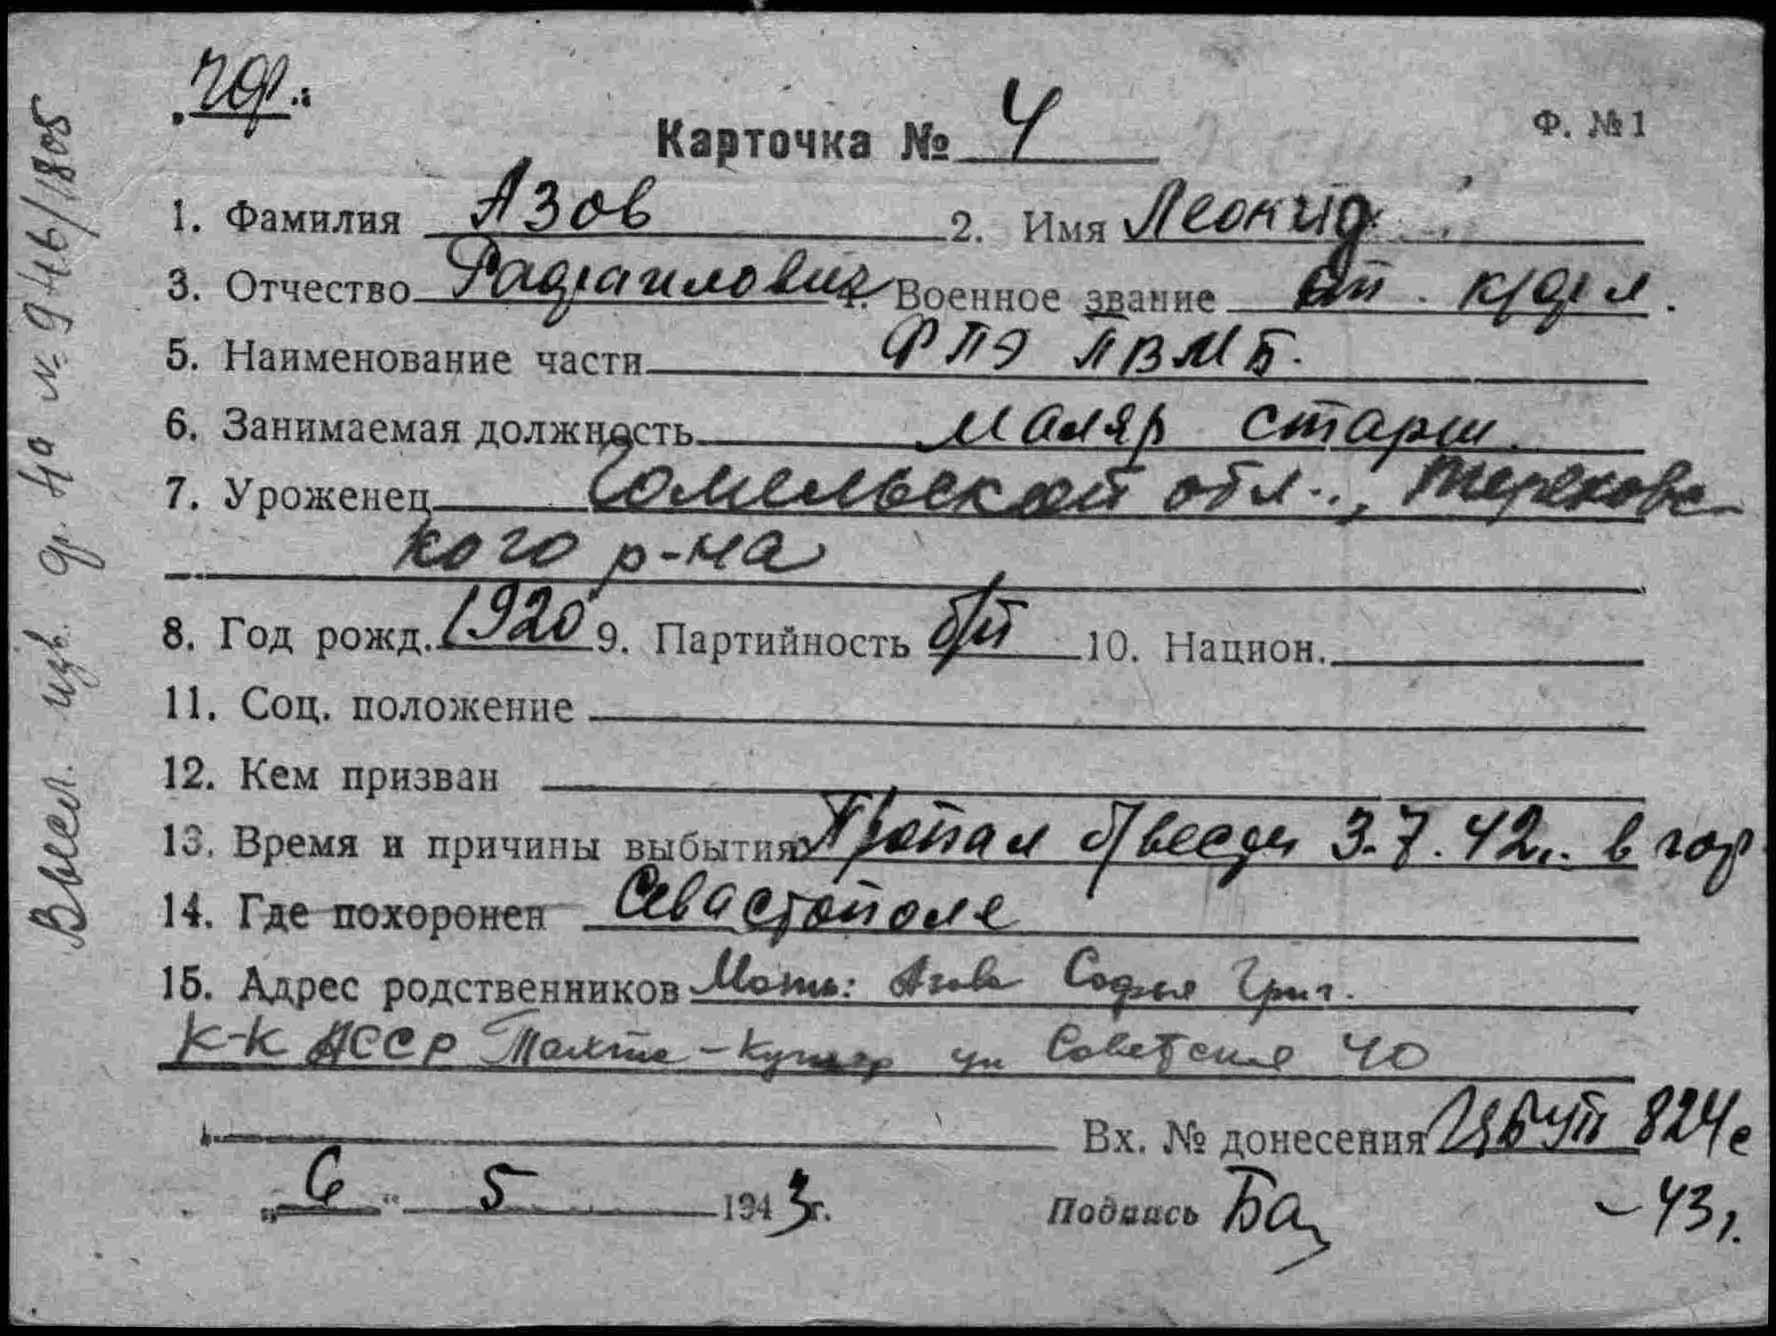 чф.
Карточка № 4
Ф. №1
1. Фамилия Азов 2. Имя Леонид
3. Отчество Рафаилович 4. Военное звание ст. к/фл.
5. Наименование части ФПЭ ПВМБ.
6. Занимаемая должность маляр старш.
7. Уроженец Гомельской обл., Тереховс-
кого р-на
8. Год рожд. 1920 9. Партийность б/п 10. Национ.
11. Соц. положение
12. Кем призван
13. Время и причины выбытия Пропал б/вести 3.7.42г. в гор
14. Где похоронен Севастополе
15. Адрес родственников Мать: Азова Софья Григ.
К-К АССР Тахта-Купыр ул Советская 40
Вх. № донесения 824с
„6“ 5 1943г. Подпись Ба
-43г.
Высл. изв. на № 9446/1805